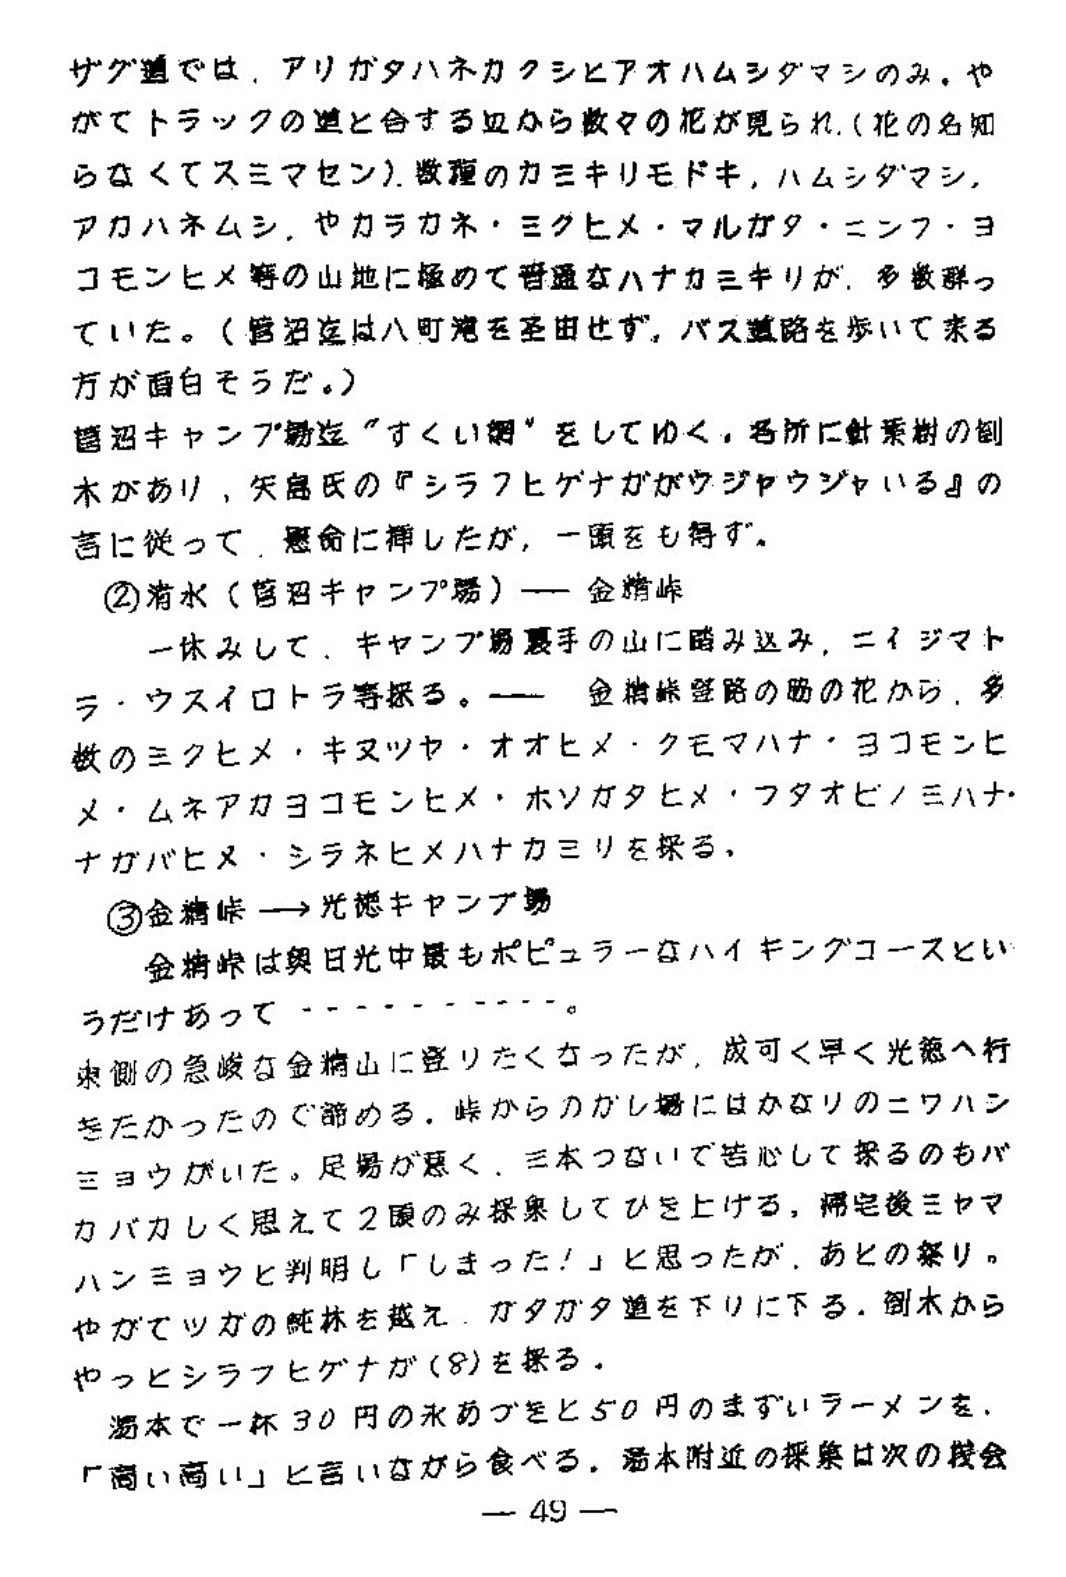 ザグ道では、アリガタハネカクシとアオハムシダマシのみ。や
がてトラックの道と合する辺から数々の花が見られ、(花の名知
らなくてスミマセン)、数種のカミキリモドキ,ハムシダマシ,
アカハネムシ、やカラカネ・ミグヒメ・マルガタ・ニンフ・ヨ
コモンヒメ等の山地に極めて普通なハナカミキリが、多数群っ
ていた。(菅沼迄は八町滝を経由せず、バス道路を歩いて来る
方が面白そうだ。)
菅沼キャンプ場迄〝すくい網〟をしてゆく。各所に針葉樹の倒
木があり、矢島氏の『シラフヒゲナガがウジャウジャいる』の
言に従って、懸命に捜したが,一頭をも得ず。
②清水(菅沼キャンプ場)── 金精峠
一休みして、キャンプ場裏手の山に踏み込み,ニイジマト
ラ・ウスイロトラ等採る。── 金精峠登路の脇の花から、多
数のミクヒメ・キヌツヤ・オオヒメ・クモマハナ・ヨコモンヒ
メ・ムネアカヨコモンヒメ・ホソガタヒメ・フタオビノミハナ・
ナガバヒメ・シラネヒメハナカミリを採る。
③金精峠 ─→ 光徳キャンプ場
金精峠は奥日光中最もポピュラーなハイキングコースとい
うだけあって - - - - - - - - - -。
東側の急峻な金精山に登りたくなったが、成可く早く光徳へ行
きたかったので諦める。峠からのガレ場にはかなりのニワハン
ミョウがいた。足場が悪く、三本つないで苦心して採るのもバ
カバカしく思えて2頭のみ採集してひき上げる。帰宅後ミヤマ
ハンミョウと判明し「しまった!」と思ったが、あとの祭り。
やがてツガの純林を越え、ガタガタ道を下りに下る。倒木から
やっとシラフヒゲナガ(8)を採る。
湯本で一杯30円の氷あづきと50円のまずいラーメンを、
「高い高い」と言いながら食べる。湯本附近の採集は次の機会
— 49 —